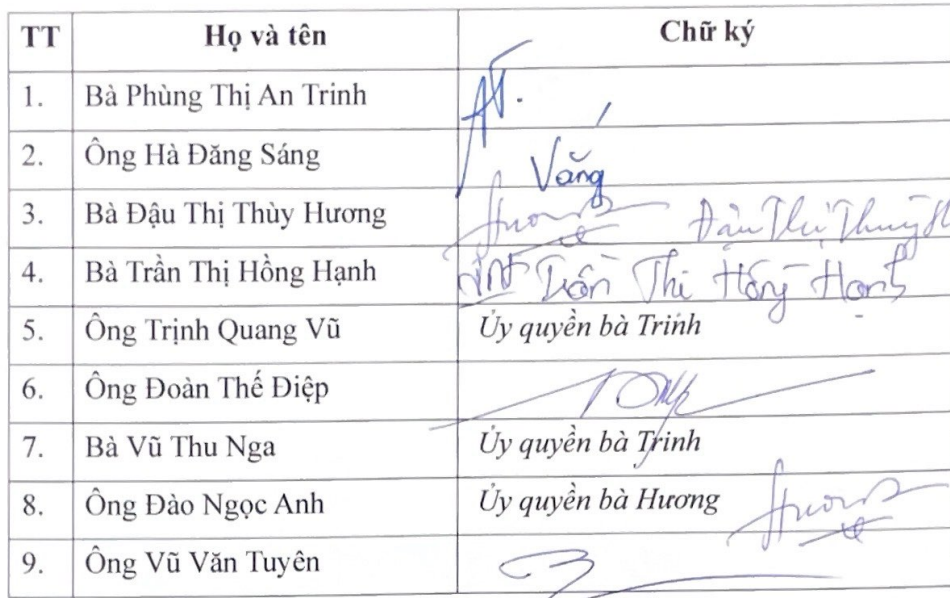 TT Họ và tên Chữ ký
1. Bà Phùng Thị An Trinh
2. Ông Hà Đăng Sáng Vắng
3. Bà Đậu Thị Thùy Hương Hương Đậu Thị Thùy
4. Bà Trần Thị Hồng Hạnh Trần Thị Hồng Hạnh
5. Ông Trịnh Quang Vũ Ủy quyền bà Trinh
6. Ông Đoàn Thế Điệp
7. Bà Vũ Thu Nga Ủy quyền bà Trinh
8. Ông Đào Ngọc Anh Ủy quyền bà Hương Hương
9. Ông Vũ Văn Tuyên